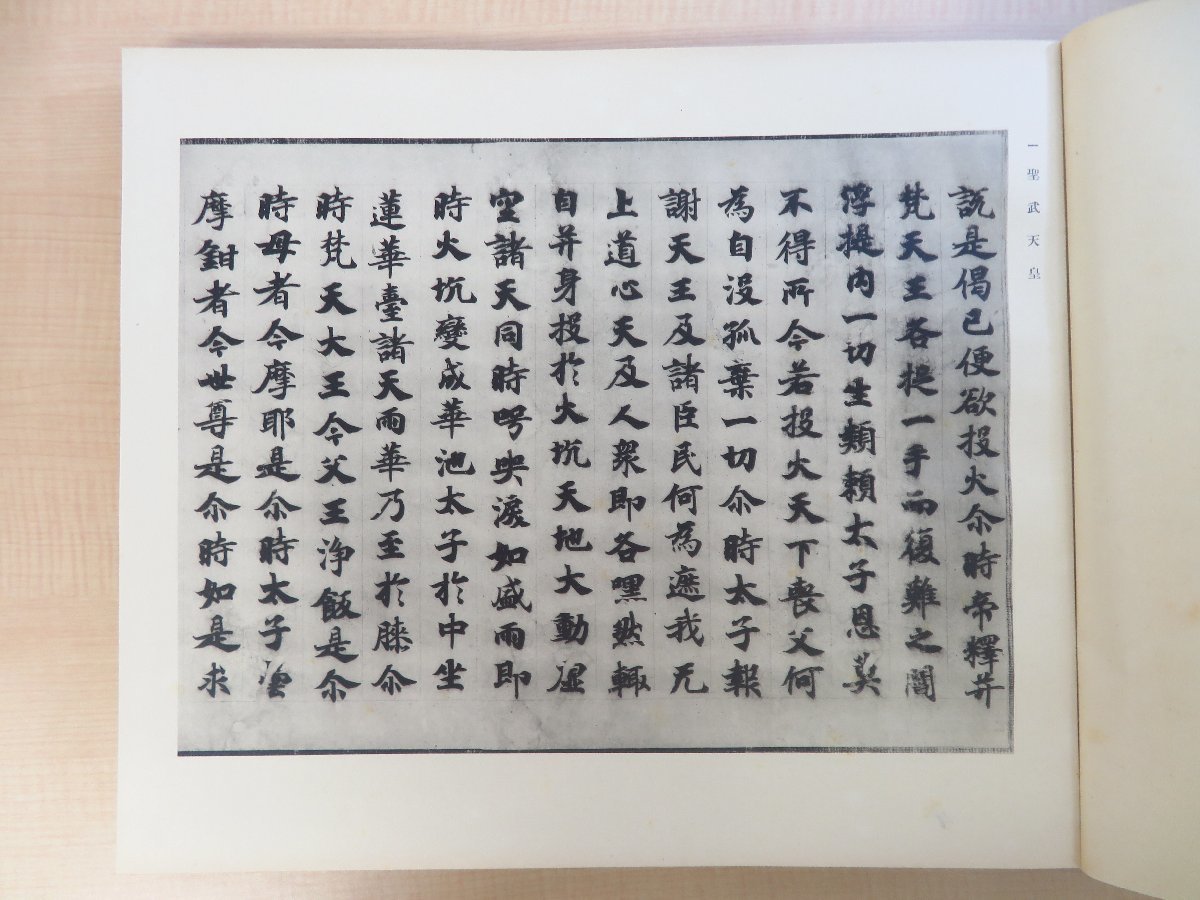 一 聖武天皇
説是偈已便欲投火尒時帝釋并
梵天王各捉一手而復難之閻
浮提内一切生類頼太子恩莫
不得所今若投火天下喪父何
為自没孤棄一切尒時太子報
謝天王及諸臣民何為遮我无
上道心天及人衆即各嘿然輙
自并身投於火坑天地大動虚
空諸天同時号哭淚如盛雨即
時火坑變成華池太子於中坐
蓮華臺諸天雨華乃至於膝尒
時梵天大王今父王浄飯是尒
時母者今摩耶是尒時太子曇
摩鉗者今世尊是尒時如是求